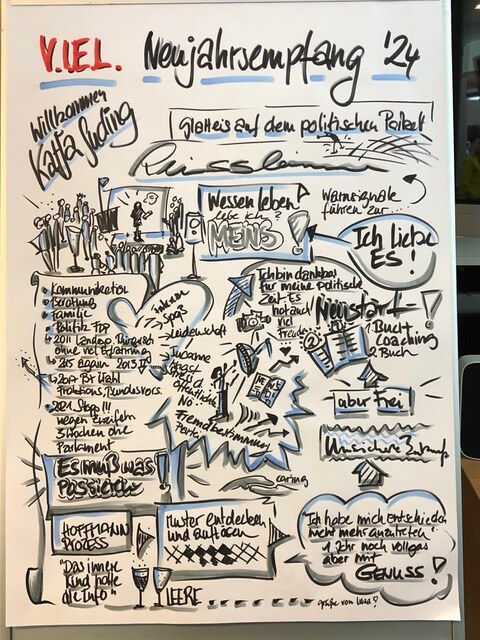 V.I.E.L. Neujahrsempfang '24
Willkommen
Katja Suding
Glatteis auf dem politischen Parkett
Wessen leben
lebe ich?
MEINS
Warnsignale
führen zur
Ich liebe
ES!
Kommunikation
Beratung
Familie
Politik FDP
ohne viel Erfahrung
2021 Stop!!!
wegen Zweifeln
3 Wochen ohne
Parlament
Es muß was
Passieren!
HOFFMANN
PROZESS
"Das innere
Kind holte
die Info"
LEERE
Muster entdecken
und auflösen
intensiv
Spaß
Leidenschaft
Ich bin dankbar
für meine politische
Zeit. Es
hat auch
viel
Freude
Fremdbestimmung
Neustart!
1 Buch
Coaching
2 Buch
aber Frei
Unsichere Zukunft
caring
"Ich habe mich entschieden
nicht mehr anzutreten"
1 Jahr noch vollgas
aber mit
GENUSS!